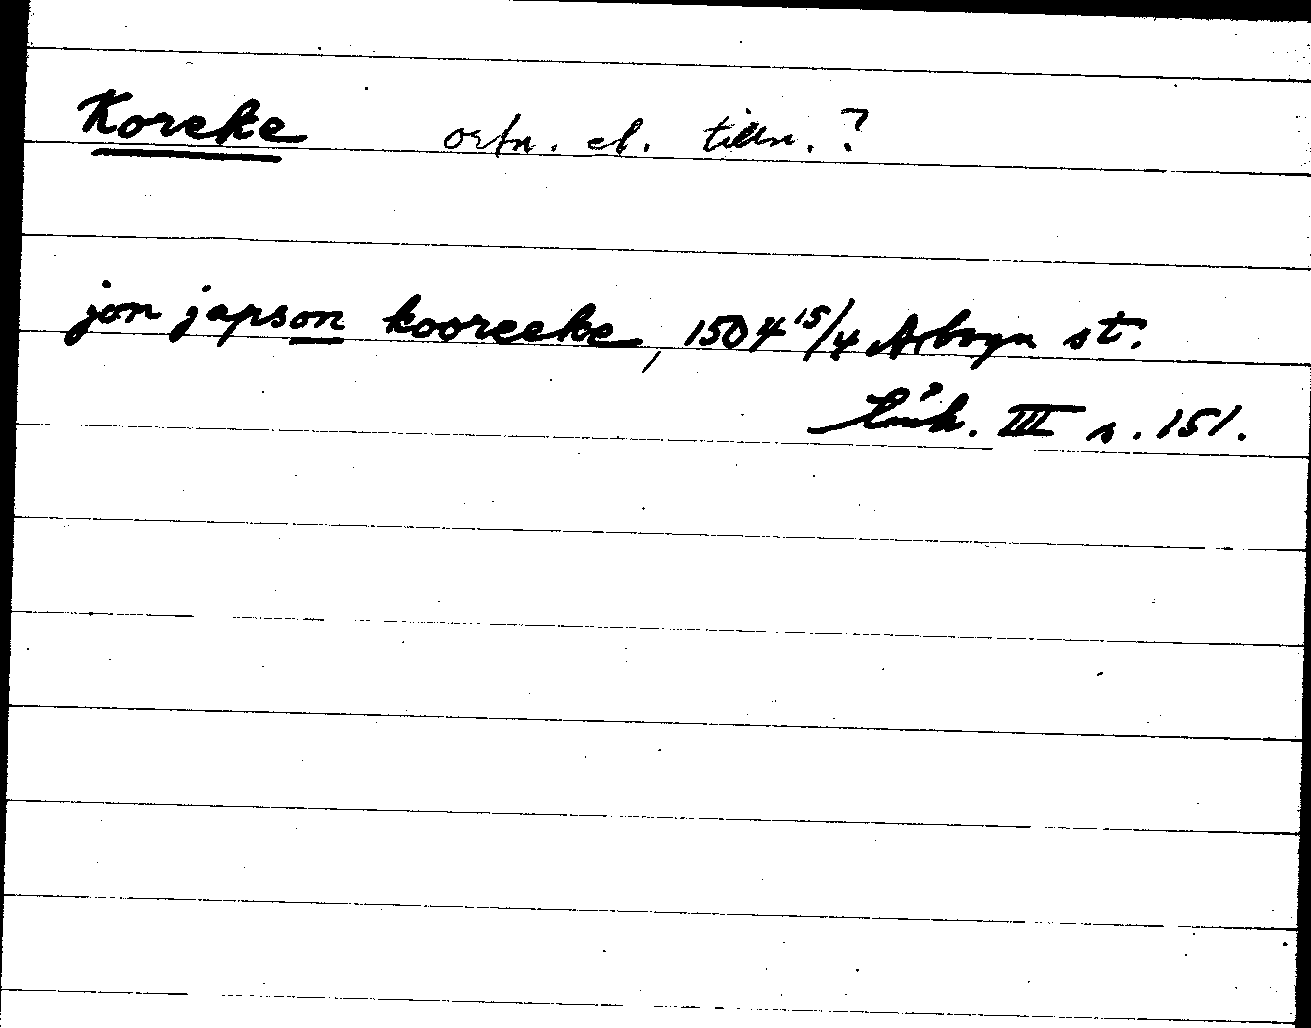 Koreke ortn. el. tilln.?
jon japson kooreeke, 1504 15/4 Arboga st.
Tänk. III s. 151.